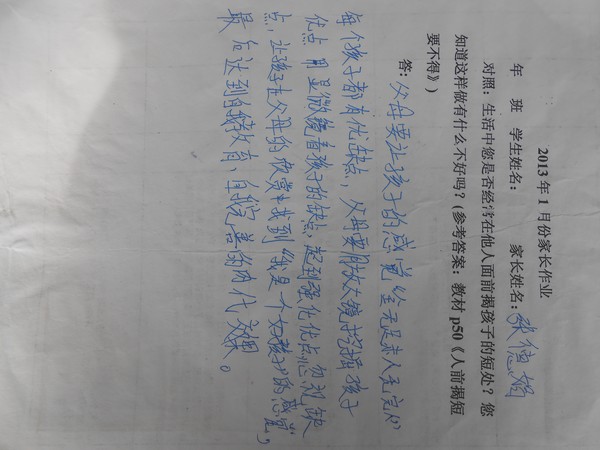 2013年1月份家长作业
年 班 学生姓名： 家长姓名：张德娟
对照：生活中您是否经常在他人面前揭孩子的短处？您
知道这样做有什么不好吗？（参考答案：教材 p50《人前揭短
要不得》）
答：父母要让孩子的感觉金无足赤人无完人
每个孩子都有优缺点，父母要用放大镜挖掘孩子
优点 用显微镜看孩子的缺点，起到强化优点忽视缺
点，让孩子在父母的欣赏中找到“我是一个好孩子”的感觉，
最后达到自我教育，自我完善的 效果。